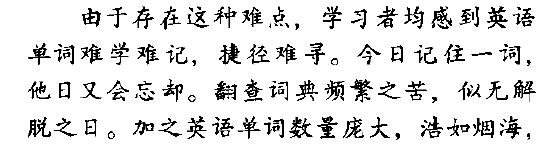 由于存在这种难点，学习者均感到英语
单词难学难记，捷径难寻。今日记住一词，
他日又会忘却。翻查词典频繁之苦，似无解
脱之日。加之英语单词数量庞大，浩如烟海，